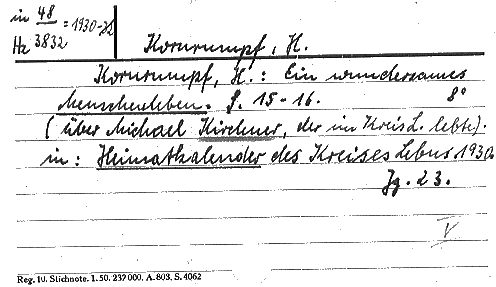 in 48 = 1930-32
Hz 3832
Kornrumpf, H.
Kornrumpf, H.: Ein wundersames
Menschenleben. S. 15-16. 8°
(über Michael Kirchner, der im Kreis L. lebte).
in: Heimatkalender des Kreises Lebus 1930.
Jg. 23.
V
Reg. IU. Stichnote. 1. 50. 237000. A. 803. S. 4062